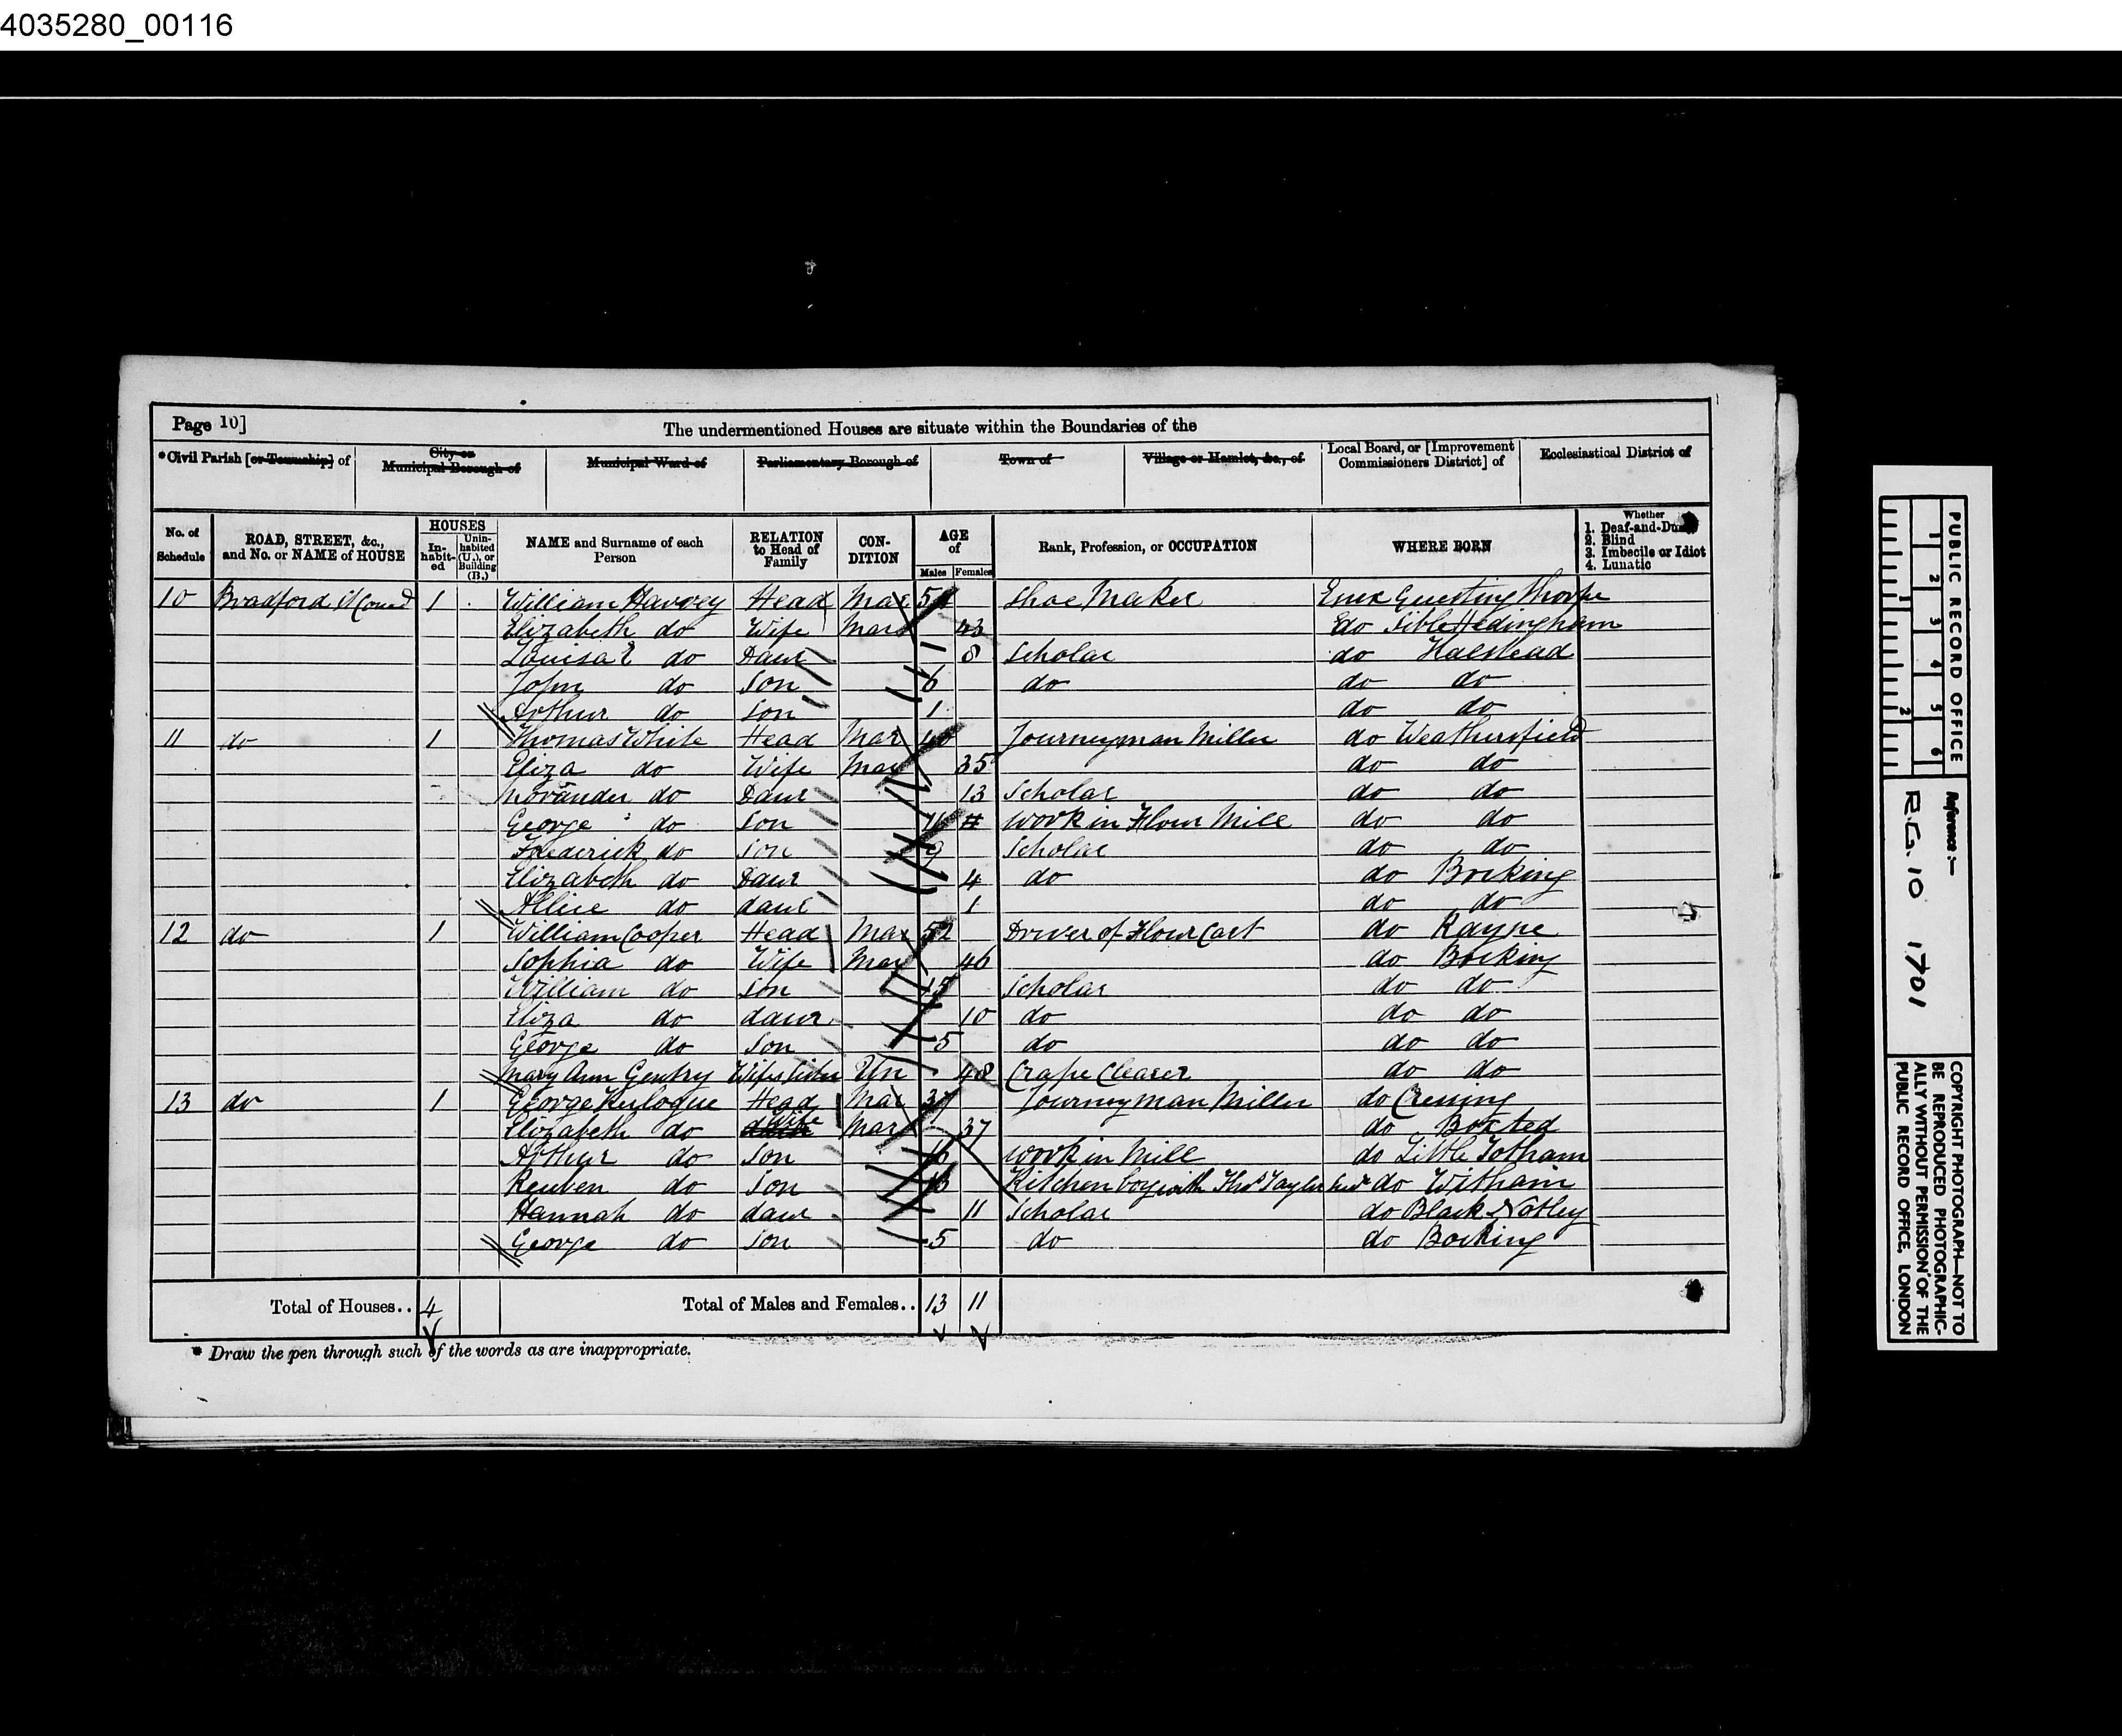 4035280_00116
Page 10]
The undermentioned Houses are situate within the Boundaries of the
*Civil Parish [or Township] of City or Municipal Borough of Municipal Ward of Parliamentary Borough of Town of Village or Hamlet, &c., of Local Board, or [Improvement Commissioners District] of Ecclesiastical District of
No. of Schedule ROAD, STREET, &c., and No. or NAME of HOUSE HOUSES In-habit-ed Unin-habited (U.), or Building (B.) NAME and Surname of each Person RELATION to Head of Family CON-DITION AGE of Males Females Rank, Profession, or OCCUPATION WHERE BORN Whether 1. Deaf-and-Dumb 2. Blind 3. Imbecile or Idiot 4. Lunatic
10 Bradford St 1 William Harvey Head Mar Shoe Maker Essex Guestingthorpe
Elizabeth do Wife Mar 43 do Sible Hedingham
Louisa E do Daur 8 Scholar do Halstead
John do Son 6 do do do
Arthur do Son 1 do do
11 do 1 Thomas White Head Mar Journeyman Miller do Weathersfield
Eliza do Wife Mar 35 do do
do Daur 13 Scholar do do
George do Son work in Flour Mill do do
Frederick do Son 9 Scholar do do
Elizabeth do Daur 4 do do Bocking
Allice do daur 1 do do
12 do 1 William Cooper Head Mar 52 Driver of Flour Cart do Rayne
Sophia do Wife Mar 46 do Bocking
William do Son 15 Scholar do do
Eliza do daur 10 do do do
George do Son 5 do do do
Mary Ann Gentry Wifes Sister Un 48 Crape Clearer do do
13 do 1 George Kulogue Head Mar 37 Journeyman Miller do Cressing
Elizabeth do Wife Mar 37 do Boxted
Arthur do Son 16 work in Mill do Little Totham
Reuben do Son 13 Kitchen boy with Thos Taylor do Witham
Hannah do daur 11 Scholar do Black Notley
George do Son 5 do do Bocking
Total of Houses.. 4 Total of Males and Females.. 13 11
* Draw the pen through such of the words as are inappropriate.
PUBLIC RECORD OFFICE
1 2 3 4 5 6
1 2
Reference:-
R.G. 10 1701
COPYRIGHT PHOTOGRAPH—NOT TO BE REPRODUCED PHOTOGRAPHIC-ALLY WITHOUT PERMISSION OF THE PUBLIC RECORD OFFICE, LONDON